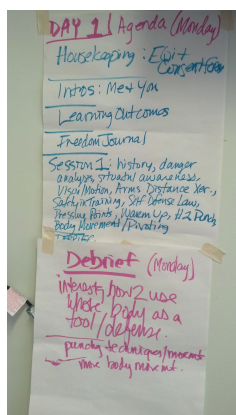 DAY 1 Agenda (Monday)
Housekeeping: EQit
Consent Form
Intros: Me & You
Learning Outcomes
Freedom Journal
Session 1: history, danger
analysis, situat'l awareness,
Visual Motion, Arms Distance Xer.,
Safety in Training, Self Defense Law,
Pressure Points, Warm Up, #2 Punch,
Body Movement/Pivoting
Debrief (Monday)
interesting how 2 use
whole body as a
tool/defense.
punching techniques/movemt
more body movemt.